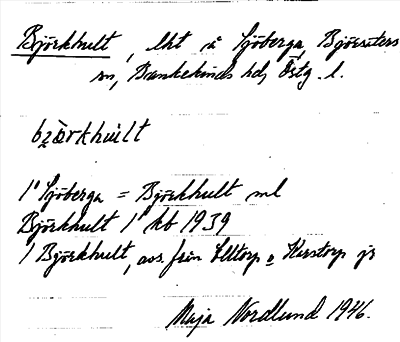 Björkhult, lht å Sjöberga, Björsäters
sn, Bankekinds hd, Östg. l.
1° Sjöberga = Björkhult ml
Björkhult 1° kb 1939
1 Björkhult, avs. från o
Maja Nordlund 1946.